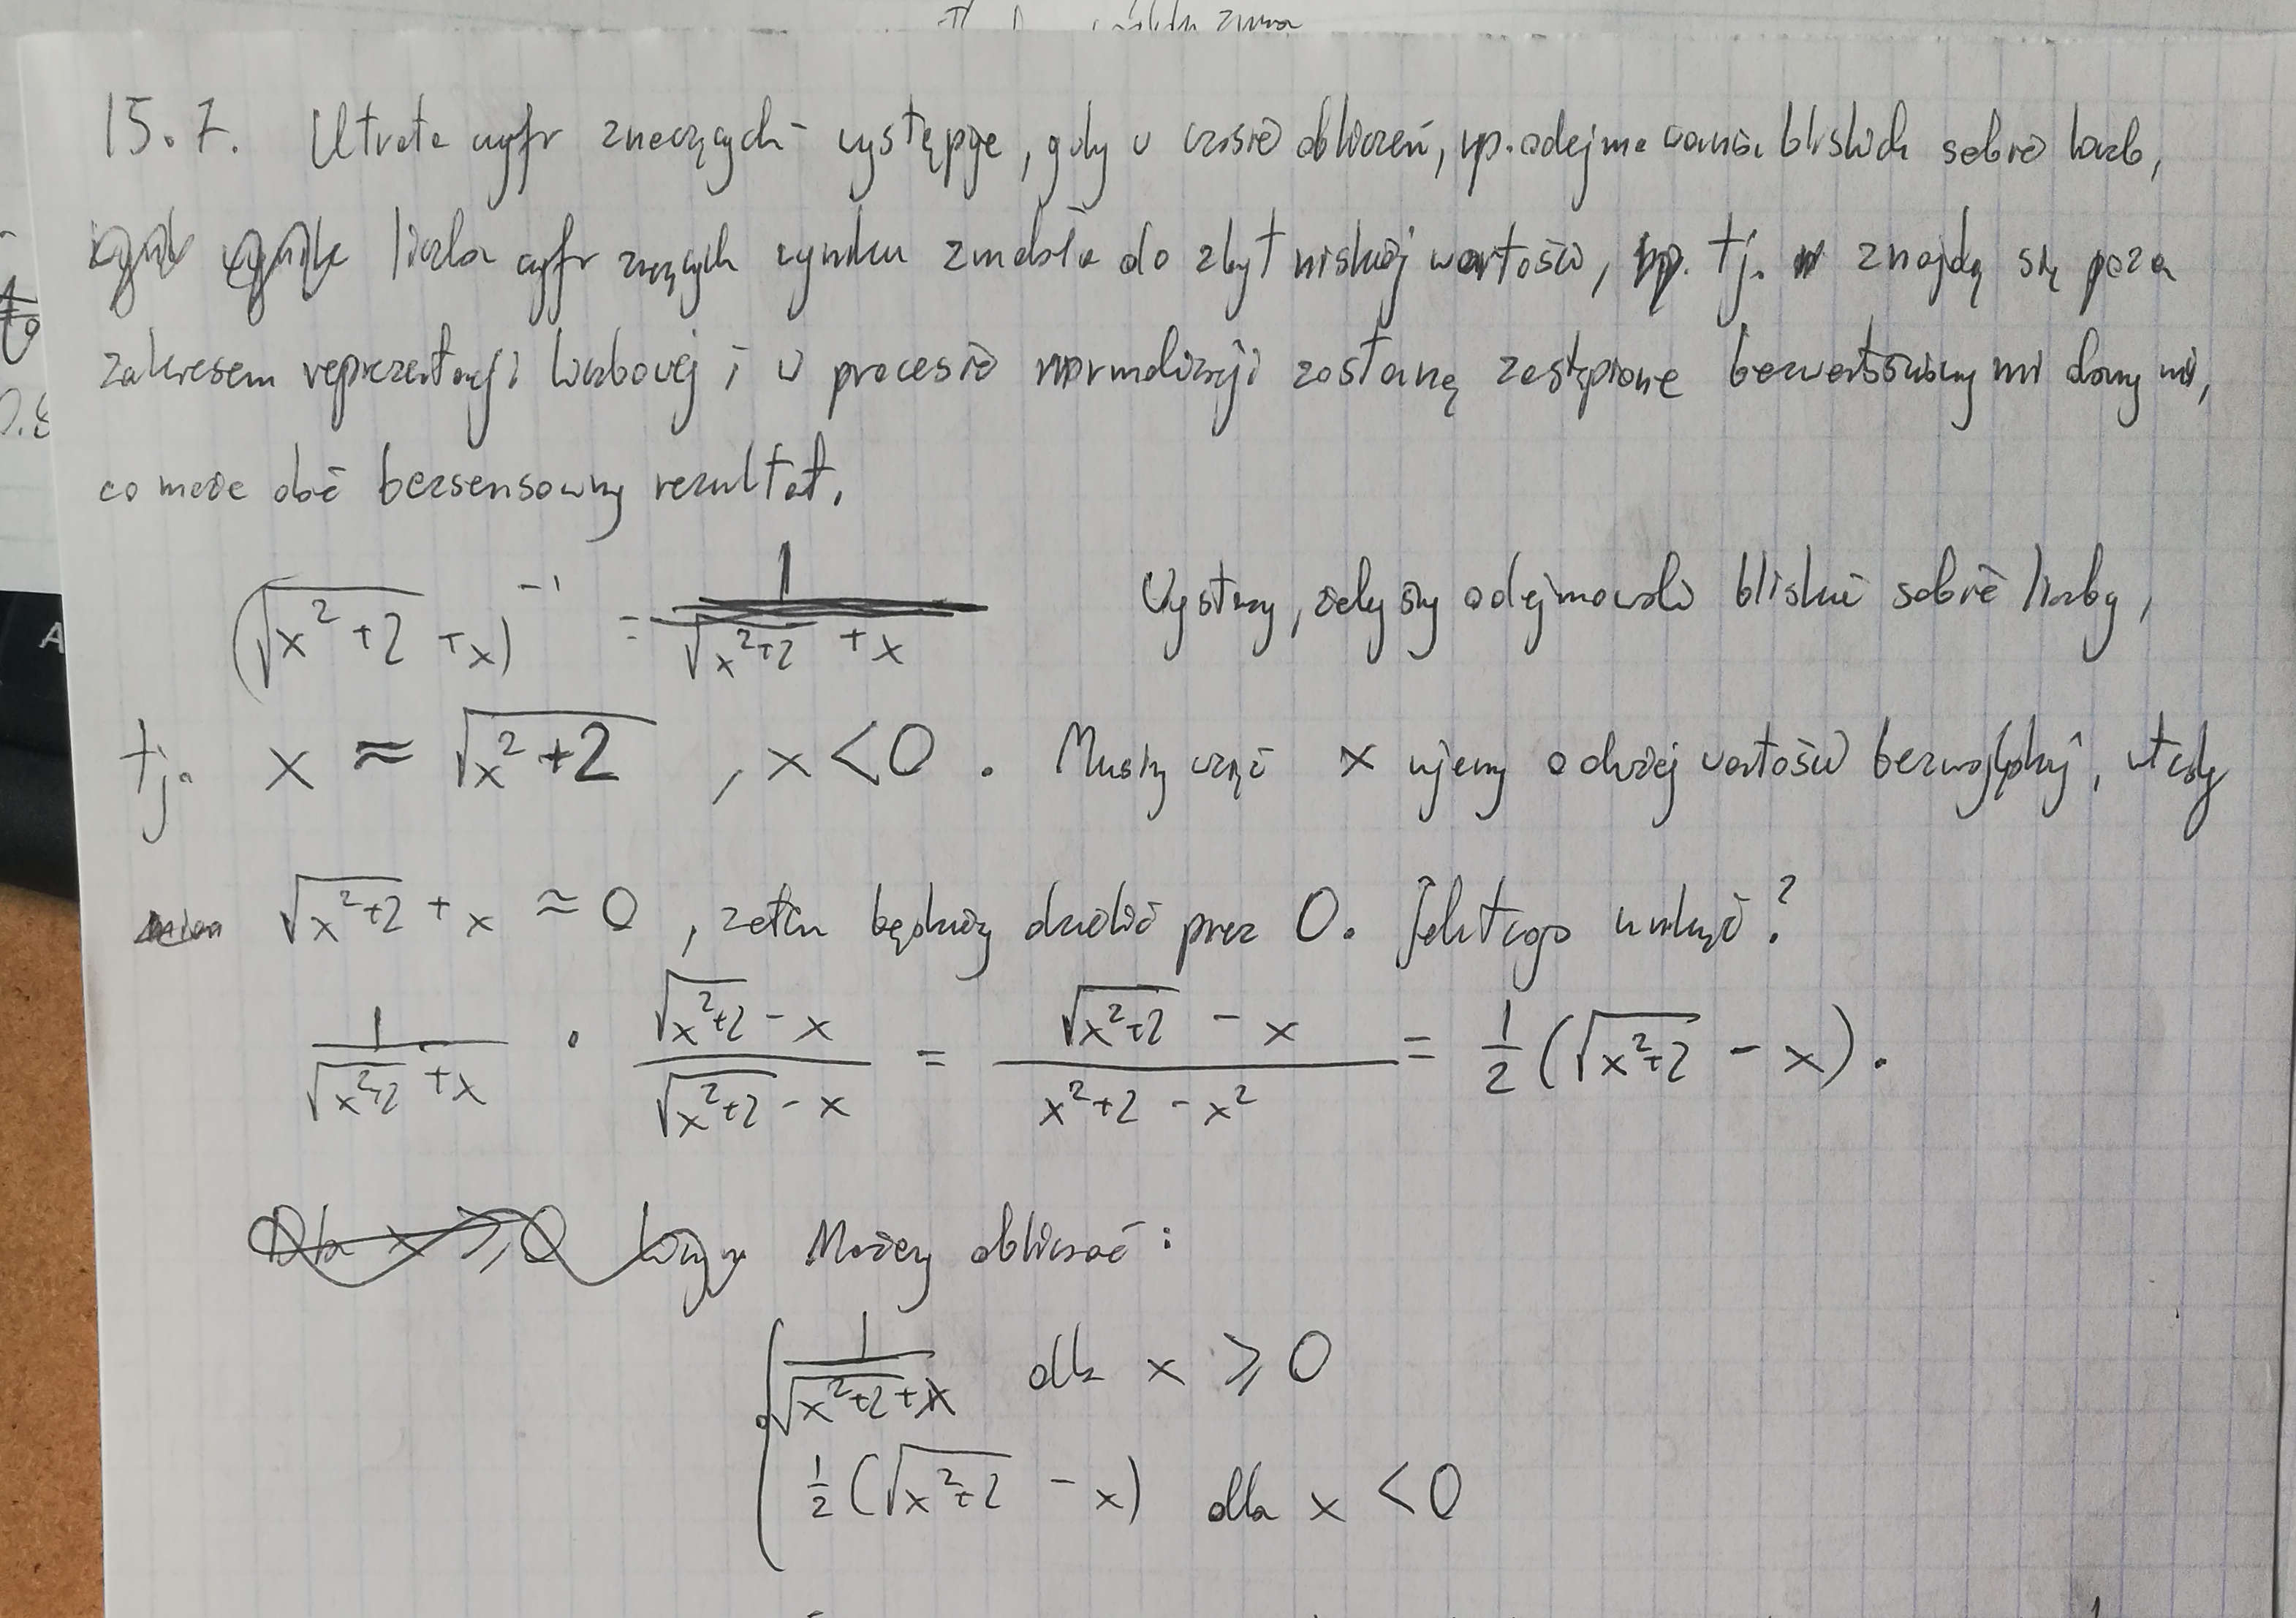 15.7. Utrata cyfr znaczących występuje, gdy w czasie obliczeń, np. odejmowania bliskich sobie liczb,
liczba cyfr znących wyniku zmalała do zbyt niskiej wartości, tj. znajdą się poza
zakresem reprezentacji liczbowej i w procesie normalizacji zostaną zastąpione bezwartościowymi danymi,
co może dać bezsensowny rezultat.
(√(x²+2) + x)⁻¹ = 1/(√(x²+2) + x) żeby odejmowali bliskie sobie liczby,
tj. x ≈ √(x²+2) , x < 0 . Musimy wziąć x ujemny o dużej wartości bezwzględnej, wtedy
√(x²+2) + x ≈ 0 , zatem będziemy dzielić przez 0. Jak tego uniknąć?
1/(√(x²+2) + x) · (√(x²+2) - x)/(√(x²+2) - x) = (√(x²+2) - x)/(x²+2 - x²) = 1/2 (√(x²+2) - x) .
Dla x ≥ 0 Możemy obliczać :
{ 1/(√(x²+2) + x) dla x ≥ 0
1/2 (√(x²+2) - x) dla x < 0